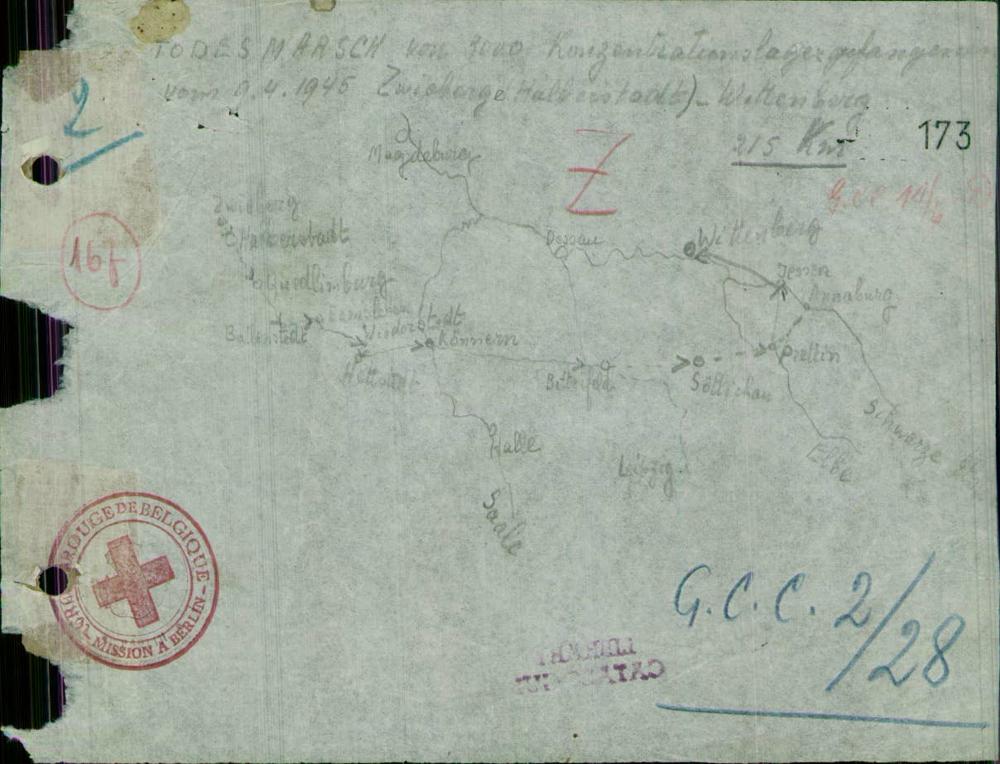 TODESMARSCH von 3000 Konzentrationslagergefangenen
vom 9.4.1945 Zwieberge (Halberstadt) - Wittenberg
215 Km
173
2
Z
Magdeburg
16f
Zwieberg
Halberstadt
Dessau
Wittenberg
Jessen
Annaburg
Quedlinburg
Ballenstedt
Könnern
Hettstedt
Bitterfeld
Söllichau
Prettin
Schwarze
Elbe
Halle
Leipzig
Saale
ROUGE DE BELGIQUE
MISSION A BERLIN
G.C.C. 2/28